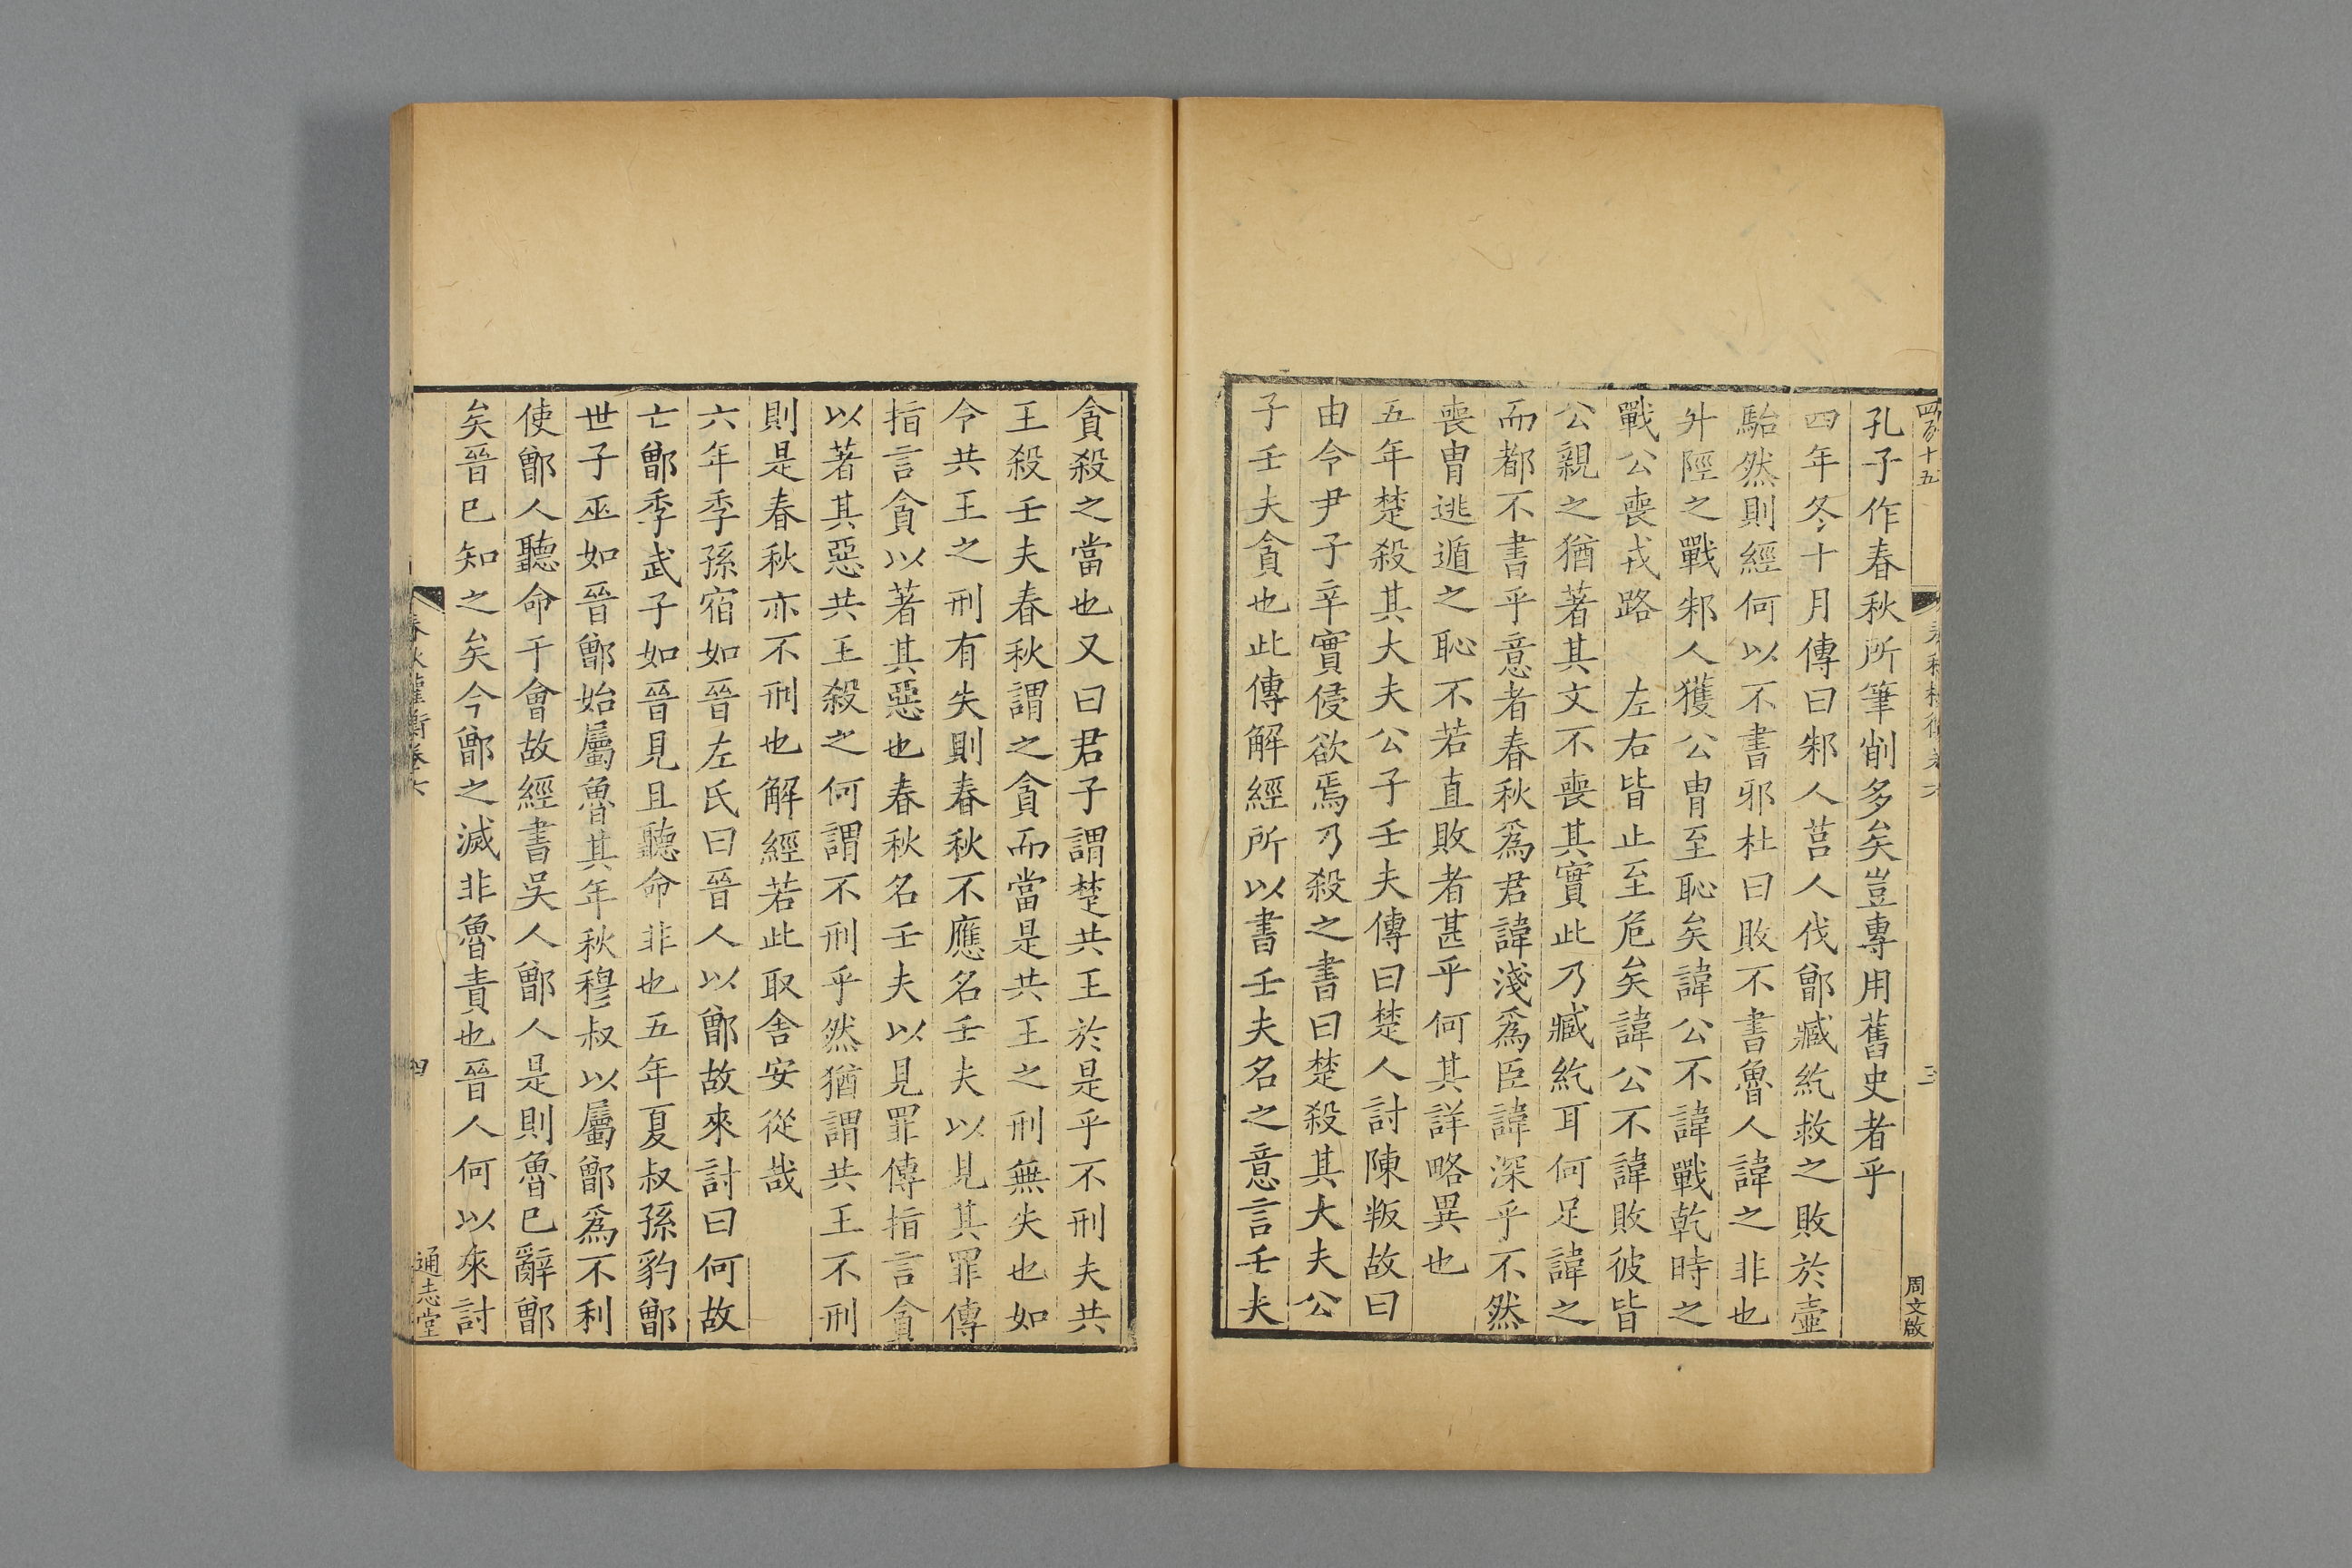 孔子作春秋所筆削多矣豈專用舊史者乎
四年冬十月傳曰邾人莒人伐鄫臧紇救之敗於壺
駘然則經何以不書邪杜曰敗不書魯人諱之非也
升陘之戰邾人獲公冑至恥矣諱公不諱戰乾時之
戰公喪戎路 左右皆止至危矣諱公不諱敗彼皆
公親之猶著其文不喪其實此乃臧紇耳何足諱之
而都不書乎意者春秋為君諱淺為臣諱深乎不然
喪冑逃遁之恥不若直敗者甚乎何其詳略異也
五年楚殺其大夫公子壬夫傳曰楚人討陳叛故曰
由令尹子辛實侵欲焉乃殺之書曰楚殺其大夫公
子壬夫貪也此傳解經所以書壬夫名之意言壬夫
周文啟
三
貪殺之當也又曰君子謂楚共王於是乎不刑夫共
王殺壬夫春秋謂之貪而當是共王之刑無失也如
令共王之刑有失則春秋不應名壬夫以見其罪傳
指言貪以著其惡也春秋名壬夫以見罪傳指言貪
以著其惡共王殺之何謂不刑乎然猶謂共王不刑
則是春秋亦不刑也解經若此取舍安從哉
六年季孫宿如晉左氏曰晉人以鄫故來討曰何故
亡鄫季武子如晉見且聽命非也五年夏叔孫豹鄫
世子巫如晉鄫始屬魯其年秋穆叔以屬鄫為不利
使鄫人聽命于會故經書吳人鄫人是則魯已辭鄫
矣晉已知之矣今鄫之滅非魯責也晉人何以來討
春秋權衡卷六
四
通志堂